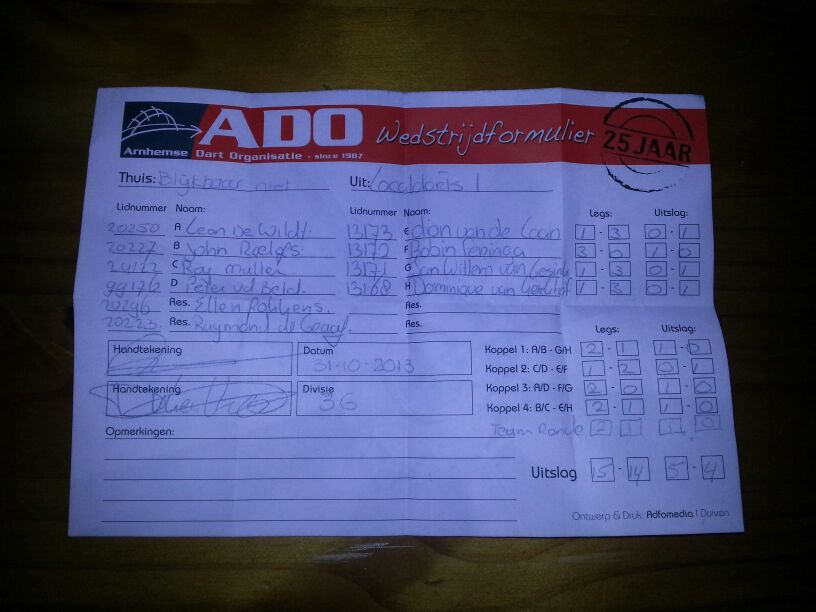 ADO Wedstrijdformulier 25 JAAR
Arnhemse Dart Organisatie - since 1987
Thuis: Blijkbaar niet Uit: Localdarts 1
Lidnummer Naam: Lidnummer Naam: Legs: Uitslag:
20250 A Leon De Wildt 13173 E dion van de Laan 1 - 3 0 - 1
20227 B John Roelofs 13172 F Robin Peninga 3 - 0 1 - 0
C Roy Muller 13171 G Jan Willem van 1 - 3 0 - 1
99172 D Peter vd Beld 13168 H Dominique van 1 - 3 0 - 1
20246 Res. Ellen Res.
20223 Res. Raymond de Graaf. Res.
Legs: Uitslag:
Handtekening Datum Koppel 1: A/B - G/H 2 - 1 1 - 0
31-10-2013 Koppel 2: C/D - E/F 1 - 2 0 - 1
Handtekening Divisie Koppel 3: A/D - F/G 2 - 0 1 - 0
36 Koppel 4: B/C - E/H 2 - 1 1 - 0
Opmerkingen: Team Ronde 2 1 1 0
Uitslag 15 - 14 5 - 4
Ontwerp & Druk: Adfomedia | Duiven